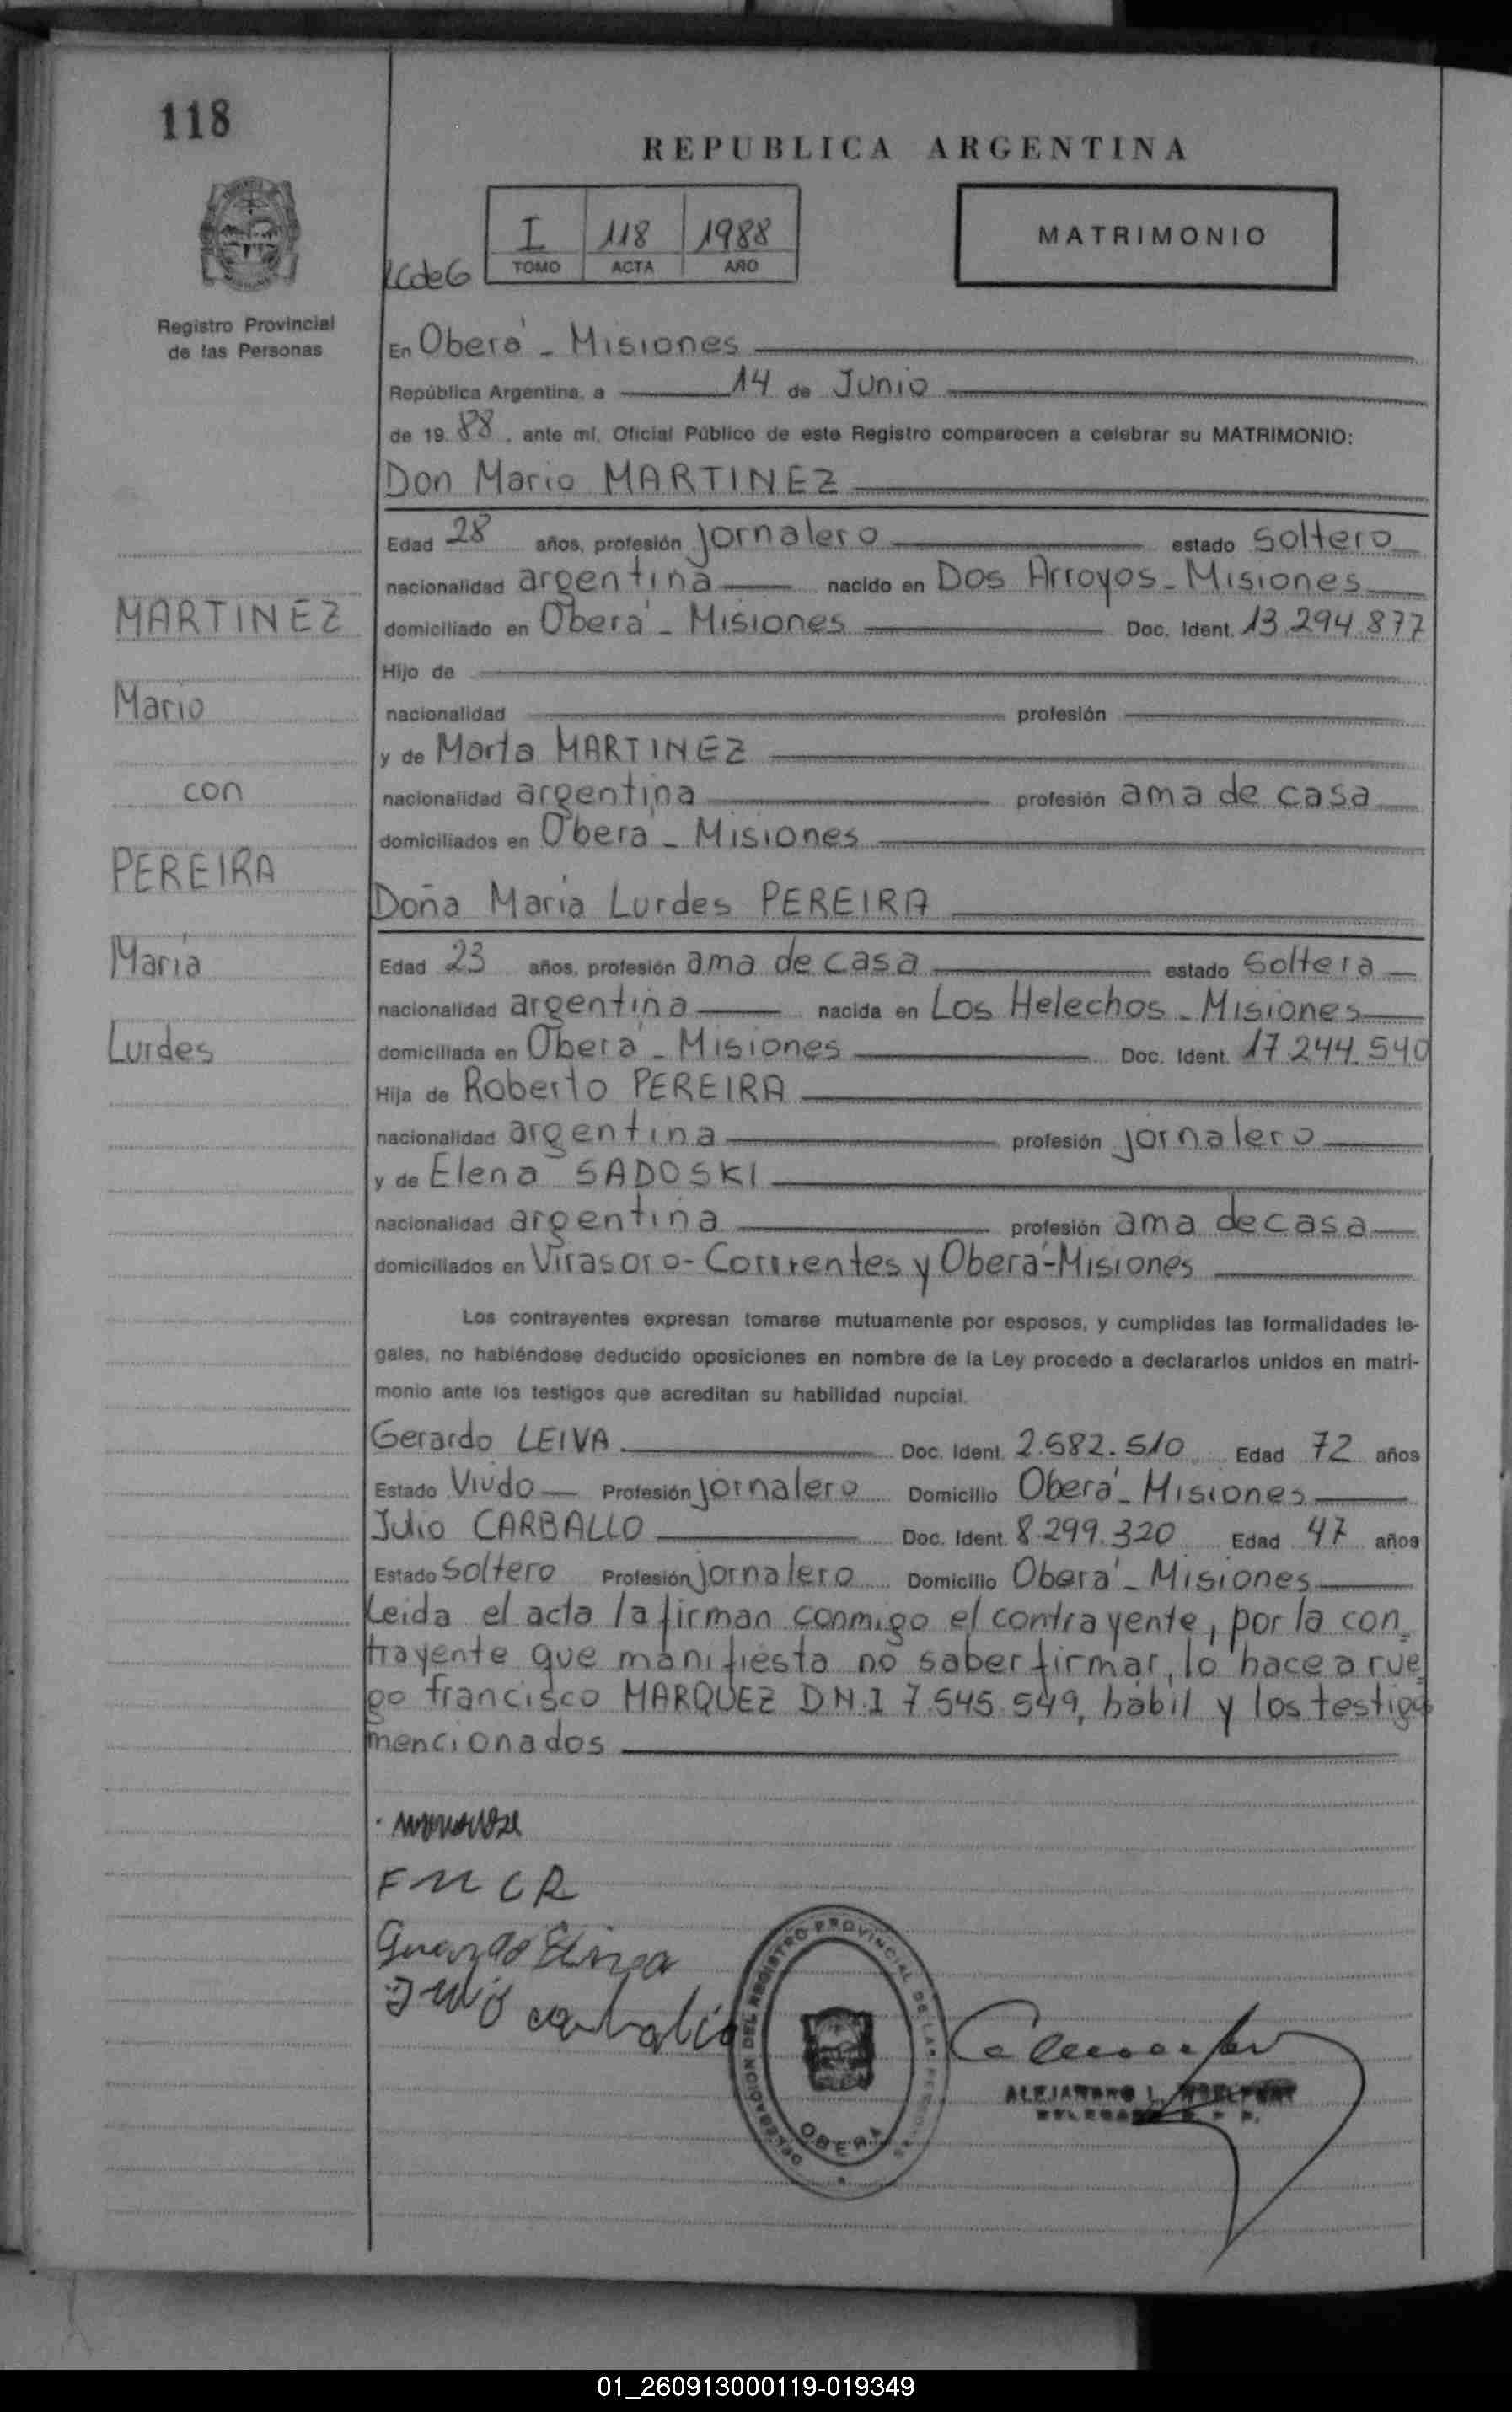 118
REPUBLICA ARGENTINA
I 118 1988
TOMO ACTA AÑO
MATRIMONIO
Registro Provincial
de las Personas
En Oberá - Misiones
República Argentina, a 14 de Junio
de 19 88, ante mí, Oficial Público de este Registro comparecen a celebrar su MATRIMONIO:
Don Mario MARTINEZ
Edad 28 años, profesión jornalero estado soltero
nacionalidad argentina nacido en Dos Arroyos - Misiones
MARTINEZ
domiciliado en Oberá - Misiones Doc. Ident. 13.294.877
Hijo de
Mario
nacionalidad profesión
y de Marta MARTINEZ
con
nacionalidad argentina profesión ama de casa
domiciliados en Oberá - Misiones
PEREIRA
Doña María Lurdes PEREIRA
María
Edad 23 años, profesión ama de casa estado soltera
nacionalidad argentina nacida en Los Helechos - Misiones
Lurdes
domiciliada en Oberá - Misiones Doc. Ident. 17.244.540
Hija de Roberto PEREIRA
nacionalidad argentina profesión jornalero
y de Elena SADOSKI
nacionalidad argentina profesión ama de casa
domiciliados en Virasoro - Corrientes y Oberá - Misiones
Los contrayentes expresan tomarse mutuamente por esposos, y cumplidas las formalidades le-
gales, no habiéndose deducido oposiciones en nombre de la Ley procedo a declararlos unidos en matri-
monio ante los testigos que acreditan su habilidad nupcial.
Gerardo LEIVA Doc. Ident. 2.582.510 Edad 72 años
Estado Viudo Profesión jornalero Domicilio Oberá - Misiones
Julio CARBALLO Doc. Ident. 8.299.320 Edad 47 años
Estado soltero Profesión jornalero Domicilio Oberá - Misiones
Leida el acta la firman conmigo el contrayente, por la con=
trayente que manifiesta no saber firmar, lo hace a rue
go francisco MARQUEZ D.N.I 7.545.549, hábil y los testigos
mencionados
F M C R
DELEGACION DEL REGISTRO PROVINCIAL DE LAS PERSONAS
OBERA
ALEJANDRO L.
01_260913000119-019349